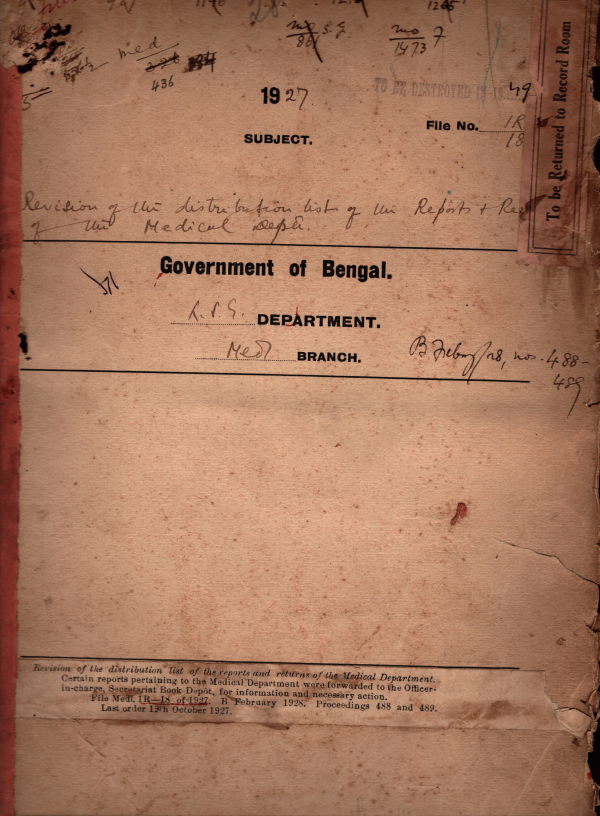 med
436
86
S.G.
mo 7
1473
1927
TO BE DESTROYED IN
49
File No. 1R
18
SUBJECT.
To be Returned to Record Room
Revision of the distribution list of the Reports +
of the Medical Dept.
Government of Bengal.
L.S.G. DEPARTMENT.
Medl BRANCH.
B Feby/28, nos. 488-
489
Revision of the distribution list of the reports and returns of the Medical Department.
Certain reports pertaining to the Medical Department were forwarded to the Officer-
in-charge, Secretariat Book Depôt, for information and necessary action.
File Medl. 1R—18 of 1927. B February 1928. Proceedings 488 and 489.
Last order 19th October 1927.